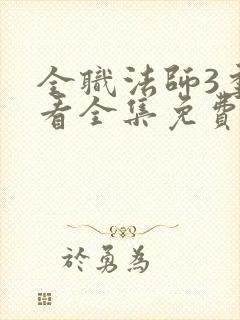 全職法師3季
看全集免費
於勇為